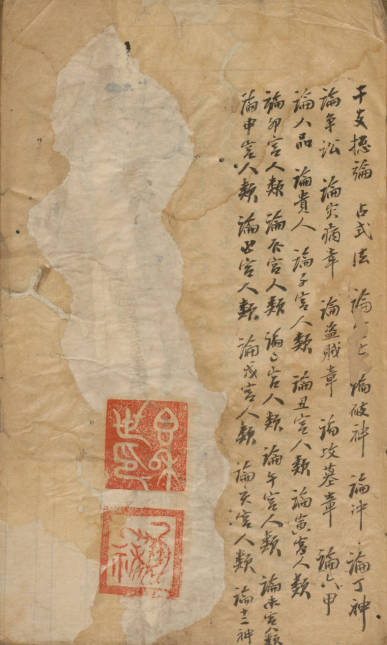 干支揔論 占式法 論 論 神 論冲 論丁神
論争訟 論宍病章 論盗賊章 論攻墓章 論六甲
論人品 論貴人 論子宫人類 論丑宫人類 論寅宫人類
論卯宫人類 論辰宫人類 論巳宫人類 論午宫人類 論未宫類
論申宫人類 論酉宫人類 論戌宫人類 論亥宫人類 論十二神